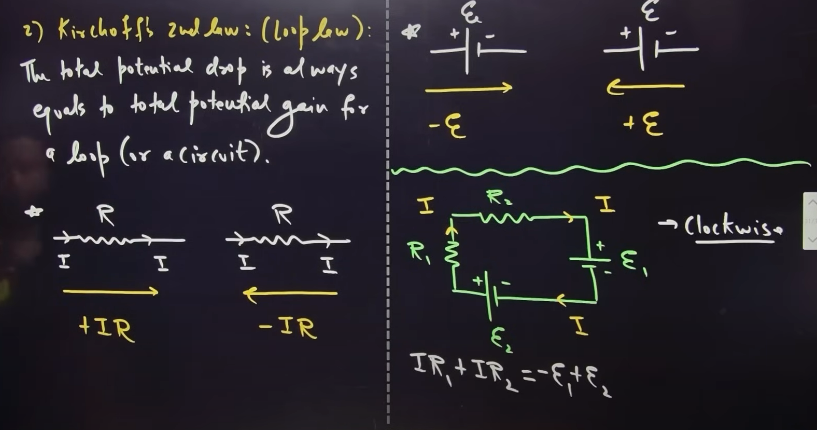 2) Kirchoff's 2nd law: (Loop law):
The total potential drop is always
equals to total potential gain for
a loop (or a circuit).
* R R
I I I I
+IR -IR
* ε ε
+ - + -
-ε +ε
I R₂ I → Clockwise
R₁ + ε₁
-
+ -
ε₂ I
IR₁ + IR₂ = -ε₁ + ε₂